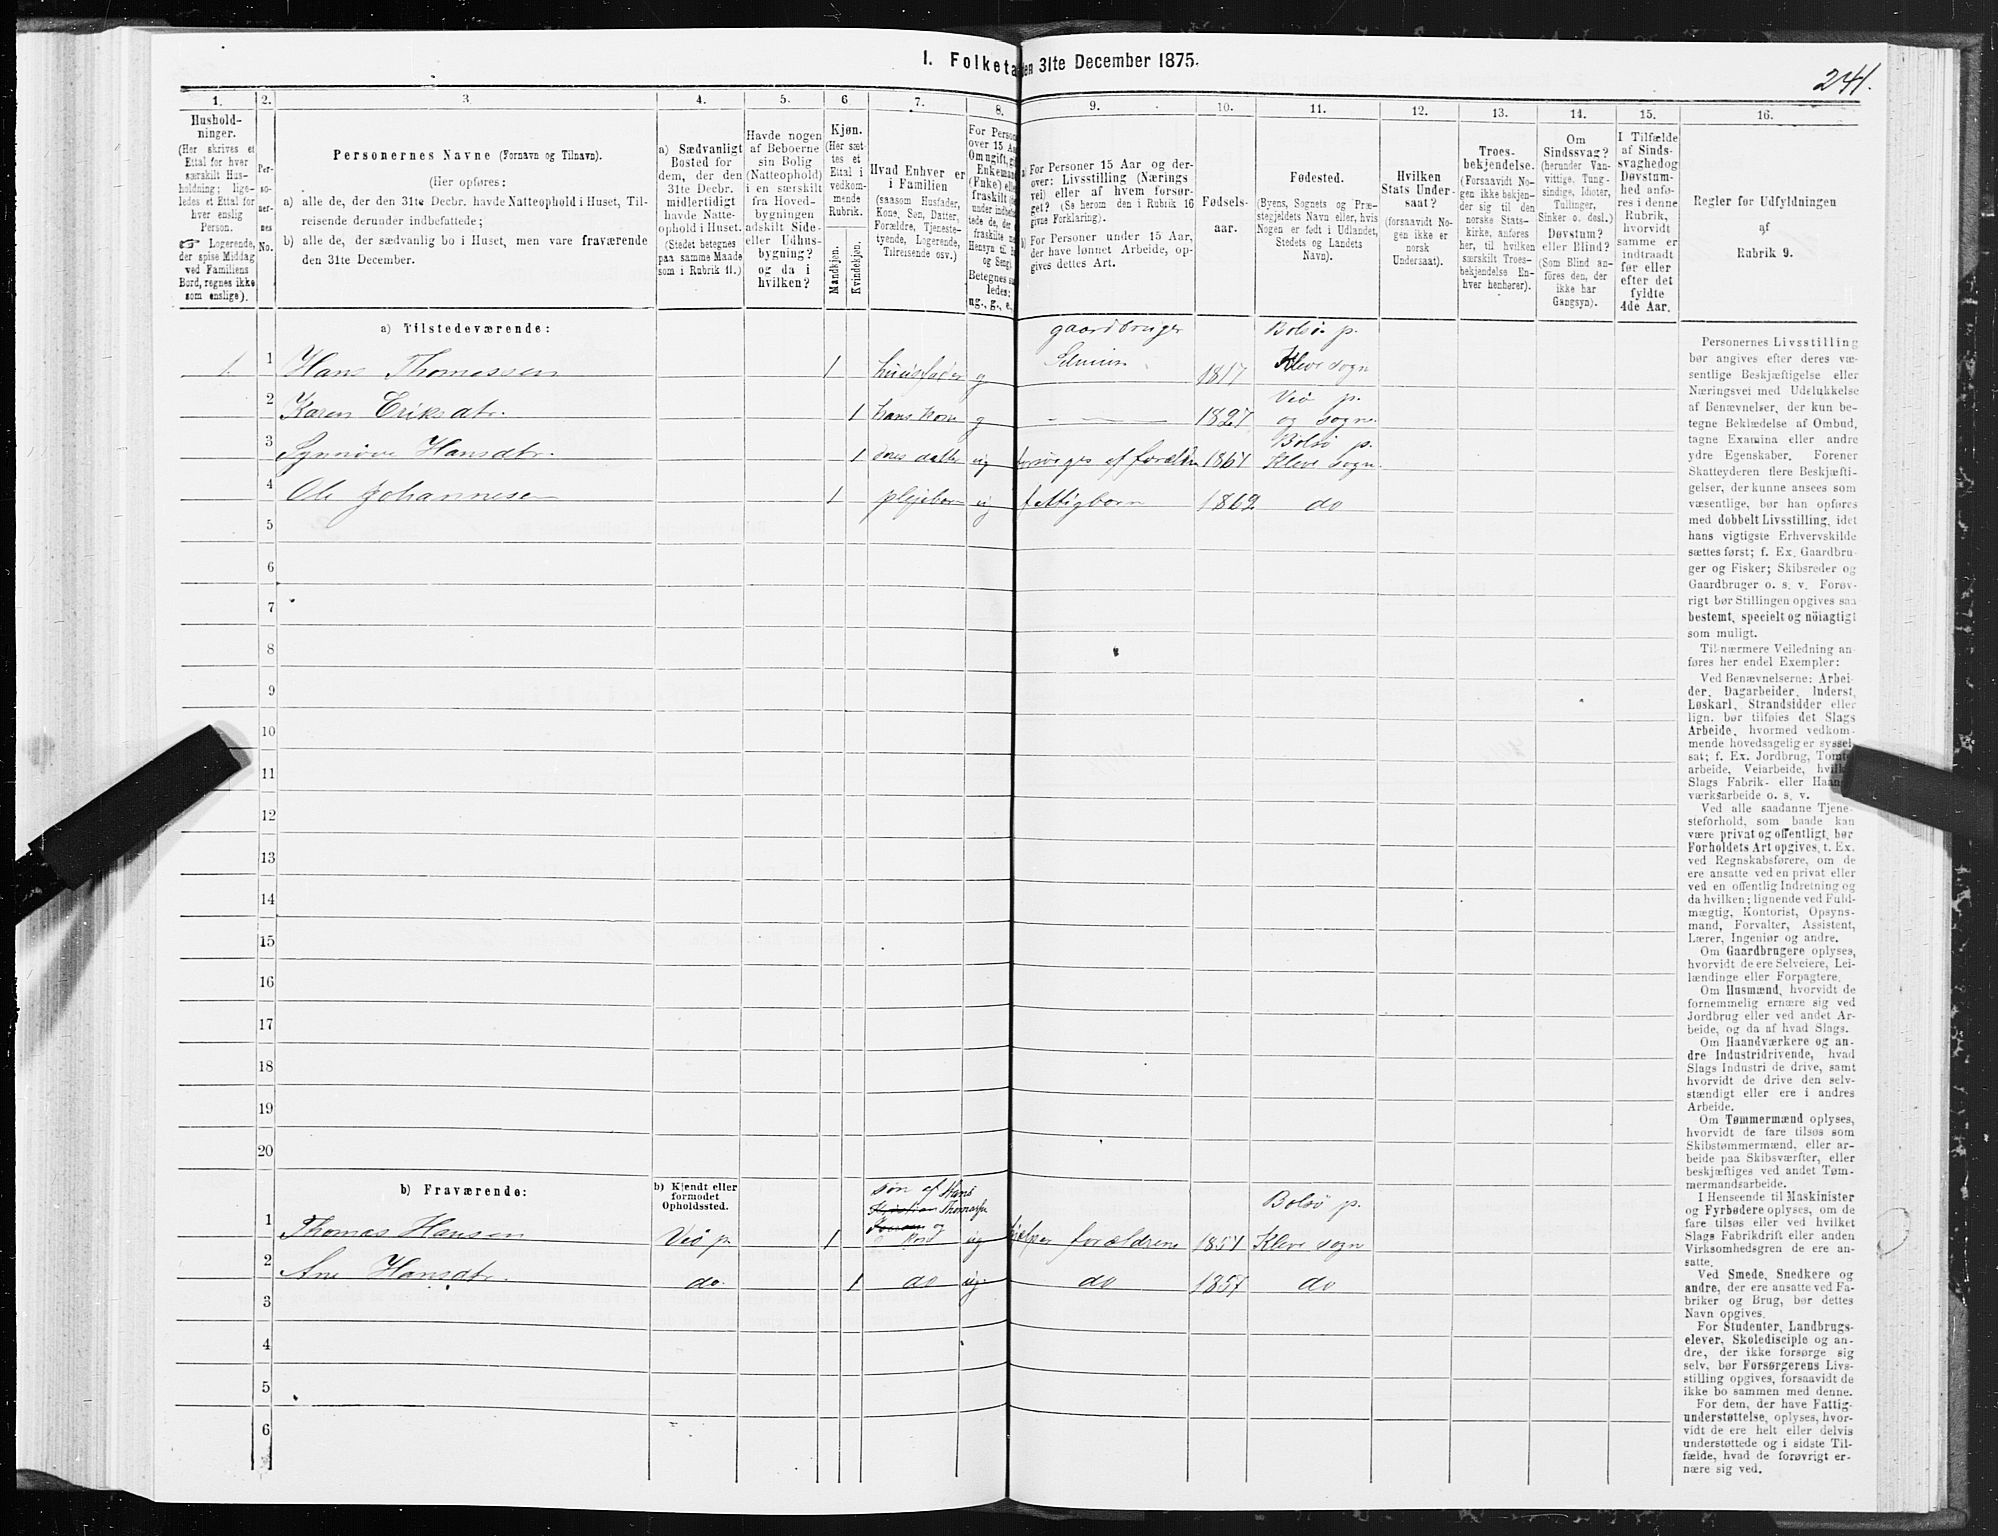 I. Folketæ
en 31te December 1875.
241.
1.
2.
3.
4.
5.
6.
7.
8.
9.
10.
11.
12.
13.
14.
15.
16.
Hushold-
ninger.
(Her skrives et
Ettal for hver
særskilt Hus-
holdning; lige-
ledes et Ettal for
hver enslig
Person.
☞ Logerende,
der spise Middag
ved Familiens
Bord, regnes ikke
som enslige).
Per-
so-
ner-
nes
No.
Personernes Navne (Fornavn og Tilnavn).
(Her opføres:
a) alle de, der den 31te Decbr. havde Natteophold i Huset, Til-
reisende derunder indbefattede;
b) alle de, der sædvanlig bo i Huset, men vare fraværende
den 31te December.
a) Sædvanligt
Bosted for
dem, der den
31te Decbr.
midlertidigt
havde Natte-
ophold i Huset.
(Stedet betegnes
paa samme Maade
som i Rubrik 11.)
Havde nogen
af Beboerne
sin Bolig
(Natteophold)
i en særskilt
fra Hoved-
bygningen
adskilt Side-
eller Udhus-
bygning?
og da i
hvilken?
Kjøn.
(Her sæt-
tes et
Ettal i
vedkom-
mende
Rubrik.
Mandkjøn.
Kvindekjøn.
Hvad Enhver er
i Familien
(saasom Husfader,
Kone, Søn, Datter,
Forældre, Tjeneste-
tyende, Logerende,
Tilreisende osv.)
For Person
over 15 Aa
Om ugift, gi
Enkemand
(Fke) elle
fraskilt
under indbe
tede de, der
fraskilte m
Hensyn til B
og Seng.
Betegnes sa
ledes:
ug., g., e.,
a) For Personer 15 Aar og der-
over: Livsstilling (Nærings
vei) eller af hvem forsør-
get? (Se herom den i Rubrik 16
givne Forklaring).
b) For Personer under 15 Aar,
der have lønnet Arbeide, op-
gives dettes Art.
Fødsels-
aar.
Fødested.
(Byens, Sognets og Præ-
stegjeldets Navn eller, hvis
Nogen er født i Udlandet,
Stedets og Landets
Navn).
Hvilken
Stats Under-
saat?
(forsaavidt No-
gen ikke er
norsk
Undersaat).
Troes-
bekjendelse.
(Forsaavidt No-
gen ikke bekjen-
der sig til den
norske Stats-
kirke, anføres
her, til hvilken
særskilt Troes-
bekjendelse En-
hver henhører).
Om
Sindssvag?
(herunder Van-
vittige, Tung-
sindige, Idioter,
Tullinger,
Sinker o. desl.)
Døvstum?
eller Blind?
(Som Blind an-
føres den, der
ikke har
Gangsyn).
I Tilfælde
af Sinds-
svaghed og
Døvstum-
hed anfø-
res i denne
Rubrik,
hvorvidt
samme er
indtraadt
før eller
efter det
fyldte
4de Aar.
Regler for Udfyldningen
af
Rubrik 9.
a) Tilstedeværende:
gaardbruger Bolsø p.
1. 1 Hans Thomassen 1 huusfader g 1817 Kleve sogn
2 Karen Eriksdtr. 1 hans kone g 1827 Veø p. og sogn.
3 Synnøve Hansdtr. 1 deres datter ug forsørges af foreldre 1867 Bolsø p. Kleve sogn.
4 Ole Johannesen 1 plejebarn ug fattigbarn 1862 do
5
6
7
8
9
10
11
12
13
14
15
16
17
18
19
20
b) Fraværende:
b) Kjendt eller
formodet
Opholdssted.
søn af Hans
Thomassen
og
Bolsø p.
1 Thomas Hansen Veø p. 1 ug hjelper forældrene 1851 Kleve sogn
2 Ane Hansdtr. do. 1 do ug. do 1857 do
3
4
5
6
Personernes Livsstilling
bør angives efter deres væ-
sentlige Beskjæftigelse eller
Næringsvei med Udelukkelse
af Benævnelser, der kun be-
tegne Beklædelse af Ombud,
tagne Examina eller andre
ydre Egenskaber. Forener
Skatteyderen flere Beskjæfti-
gelser, der kunne ansees som
væsentlige, bør han opføres
med dobbelt Livsstilling, idet
hans vigtigste Erhvervskilde
sættes først; f. Ex. Gaardbru-
ger og Fisker; Skibsreder og
Gaardbruger o. s. v. Forøv-
rigt bør Stillingen opgives saa
bestemt, specielt og nöiagtigt
som muligt.
Til nærmere Veiledning an-
føres her endel Exempler:
Ved Benævnelserne: Arbei-
der, Dagarbeider, Inderst,
Løskarl, Strandsidder eller
lign. bør tilføies det Slags
Arbeide, hvormed vedkom-
mende hovedsagelig er syssel-
sat; f. Ex. Jordbrug, Tomte-
arbeide, Veiarbeide, hvilket
Slags Fabrik- eller Haand-
værksarbeide o. s. v.
Ved alle saadanne Tjene-
steforhold, som baade kan
være privat og offentligt, bør
Forholdets Art opgives, t. Ex.
ved Regnskabsførere, om de
ere ansatte ved en privat eller
ved en offentlig Indretning og
da hvilken; lignende ved Fuld-
mægtig, Kontorist, Opsyns-
mand, Forvalter, Assistent,
Lærer, Ingeniør og andre.
Om Gaardbrugere oplyses,
hvorvidt de ere Selveiere, Lei-
lændinge eller Forpagtere.
Om Husmænd, hvorvidt de
fornemmelig ernære sig ved
Jordbrug eller ved andet Ar-
beide, og da af hvad Slags.
Om Haandværkere og an-
dre Industridrivende, hvad
Slags Industri de drive, samt
hvorvidt de drive den selv-
stændigt eller ere i andres
Arbeide.
Om Tømmermænd oplyses,
hvorvidt de fare tilsøs som
Skibstømmermænd, eller ar-
beide paa Skibsværfter, eller
beskjæftiges ved andet Tøm-
mermandsarbeide.
I Henseende til Maskinister
og Fyrbødere oplyses, om de
fare tilsøs eller ved hvilket
Slags Fabrikdrift eller anden
Virksomhedsgren de ere an-
satte.
Ved Smede, Snedkere og
andre, der ere ansatte ved Fa-
briker og Brug, bør dettes
Navn opgives.
For Studenter, Landbrugs-
elever, Skoledisciple og an-
dre, der ikke forsørge sig
selv, bør Forsørgerens Livs-
stilling opgives, forsaavidt de
ikke bo sammen med denne.
For dem, der have Fattig-
understøttelse, oplyses, hvor-
vidt de ere helt eller delvis
understøttede og i sidste Til-
fælde, hvad de forøvrigt er-
nære sig ved.